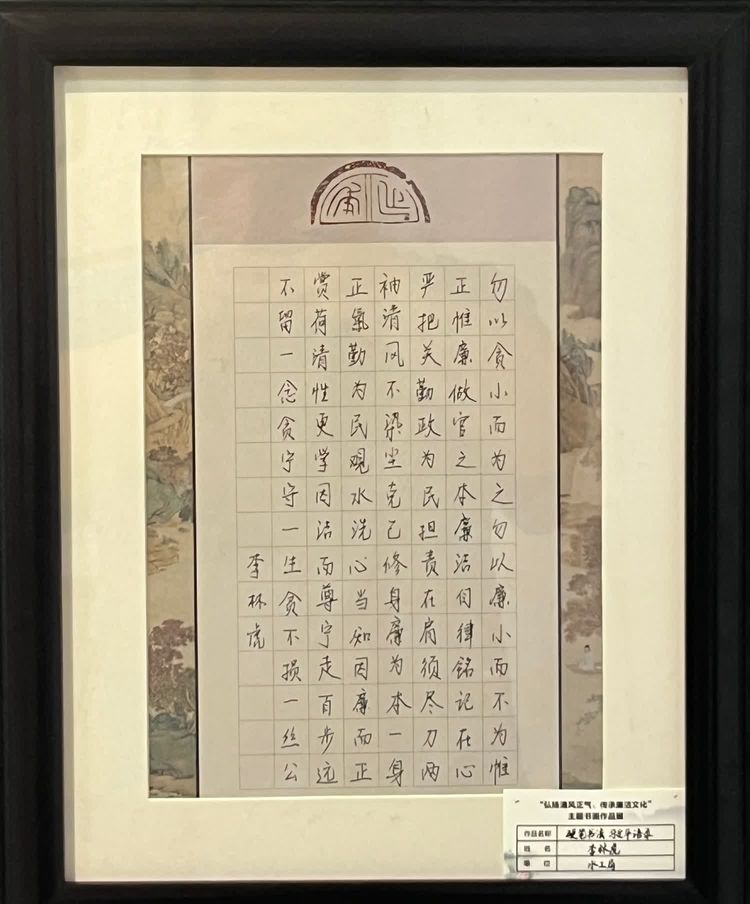 勿以贪小而为之勿以廉小而不为惟
正惟廉做官之本廉洁律铭记在心
严把关勤政为民担责在肩须尽力两
袖清风不染尘克己修身廉为本一身
正氣勤为民观水洗心当知因廉而正
赏荷清性更学因洁而尊宁走百步远
不留一念贪宁守一生贫不损一丝公
李林虎
“弘扬清风正气、传承廉洁文化”
主题书画作品展
作品名称 硬笔书法
姓名 李林虎
单位 水工